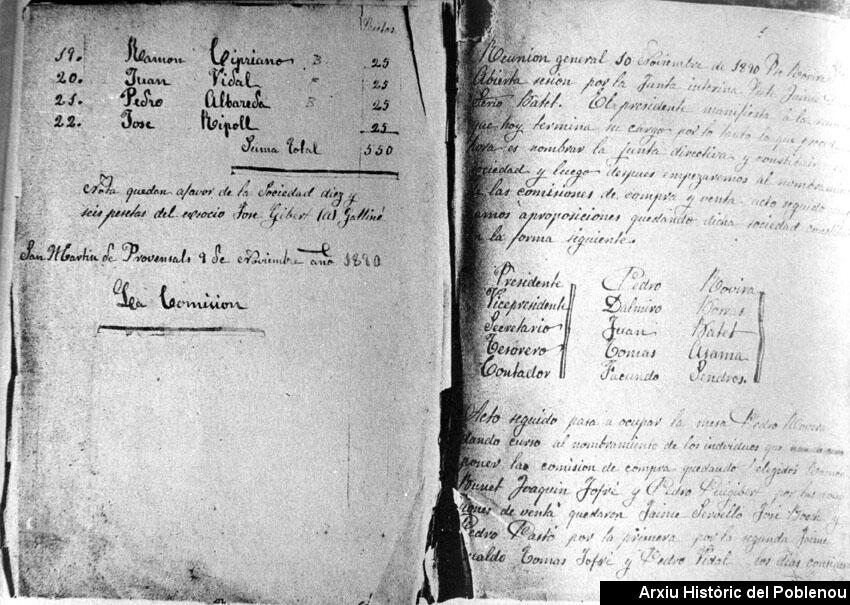 Pesetas
19. Ramon Cipriano B 25
20. Juan Vidal 25
21. Pedro Albareda B 25
22. Jose Ripoll 25
Suma total 550
Nota quedan afavor de la Sociedad diez y
seis pesetas del exsocio Jose Gibert (a) Galliné
San Martin de Provensals 9 de Noviembre año 1890
La Comision
Reunion general 10 Noviembre de 1890
Abierta sesion por la Junta interina Jaime
Batet. El presidente manifiesta á la
que hoy termina su cargo por lo tanto lo que
es nombrar la junta directiva y
Sociedad y luego despues empezaremos al
las comisiones de compra y venta acto seguido
proposiciones quedando dicha sociedad
la forma siguiente.
Presidente Pedro Rovira
Vicepresidente Dalmiro Borras
Secretario Juan Batet
Tesorero Tomas Asama
Contador Facundo Sendros.
Acto seguido pasa a ocupar la mesa Pedro Rovira
dando curso al nombramiento de los individuos que
poner las comision de compra quedando elegidos
Joaquin Jofré y Pedro Puigibert por las
de venta quedaron Jaime Jose Bosch y
Pedro Pastó por la primera por la segunda Jaime
Tomas Jofré y Pedro Vidal los dias
Arxiu Històric del Poblenou